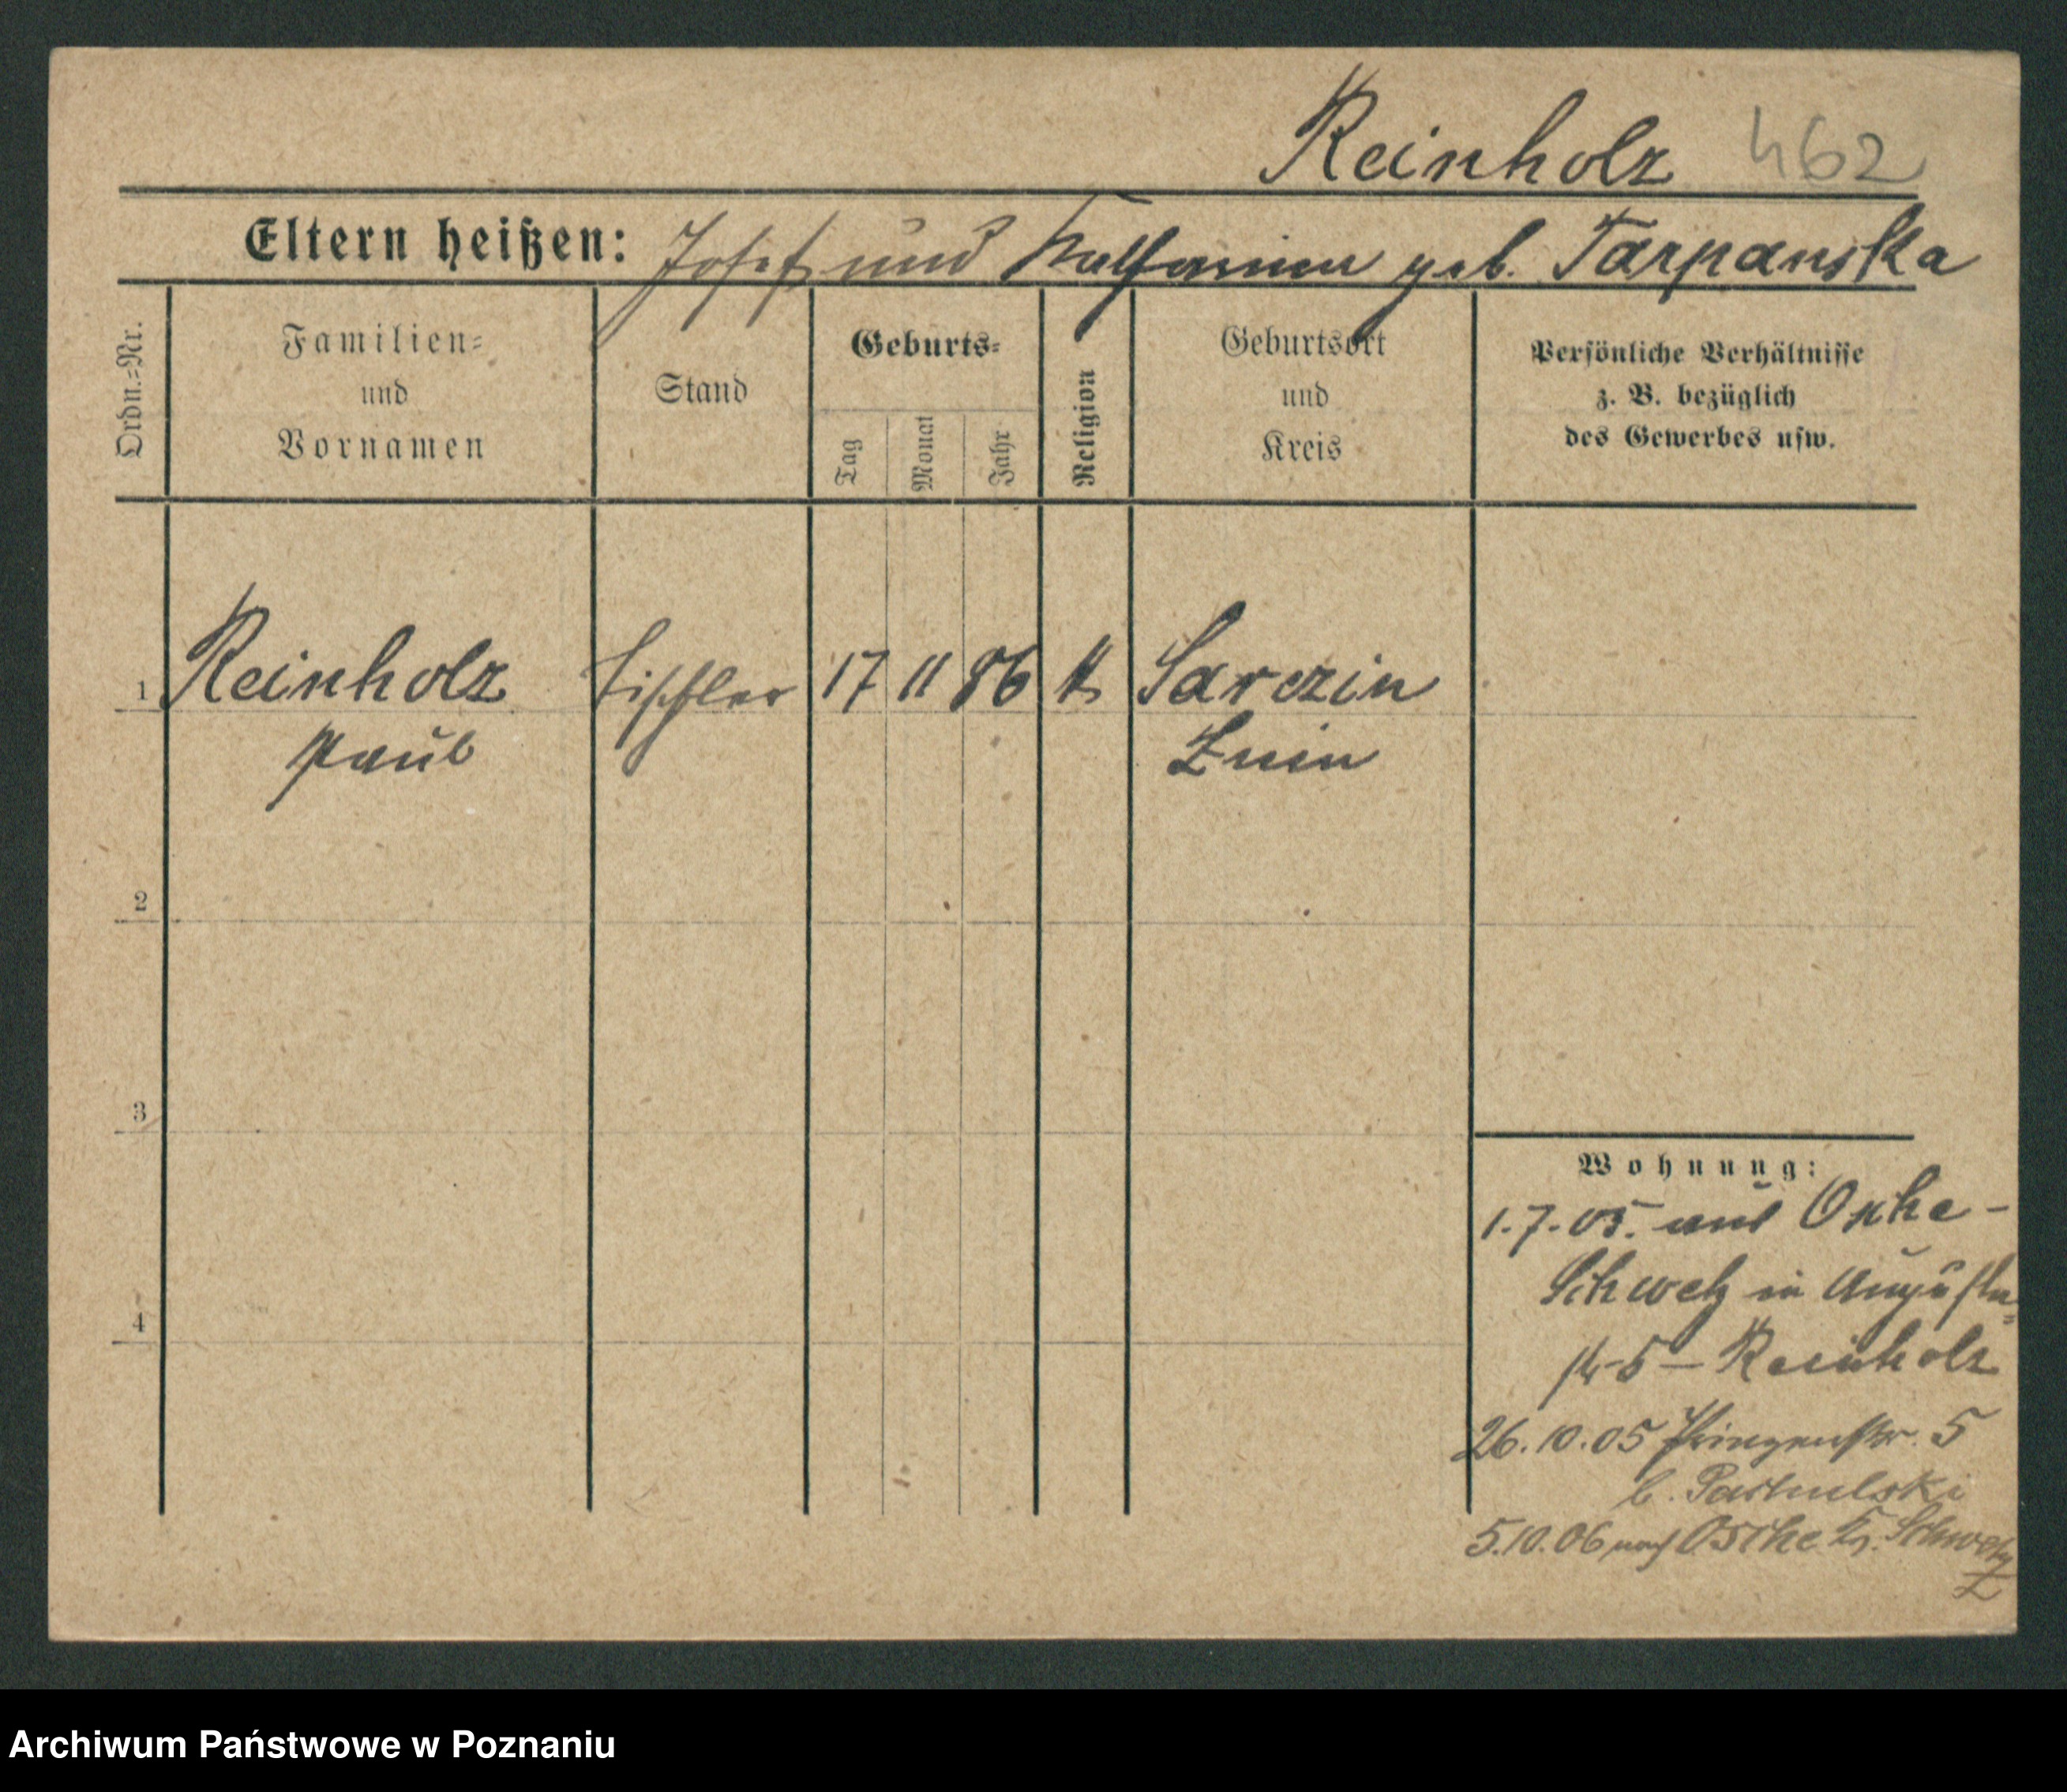 Reinholz 462
Eltern heißen: Josef und Katharina geb. Tarpanska
Ordn.=Nr.
Familien=
und
Vornamen
Stand
Geburts=
Tag
Monat
Jahr
Religion
Geburtsort
und
Kreis
Persönliche Verhältnisse
z. B. bezüglich
des Gewerbes usw.
1 Reinholz Tischler 17 11 86 k Sarczin
Paul Znin
2
3
4
Wohnung:
1.7.05. aus Osche-
Schwetz in Augusta=
str 5 - Reinholz
26.10.05 Prinzenstr. 5
b.
5.10.06 nach Osche Kr. Schwetz
Archiwum Państwowe w Poznaniu